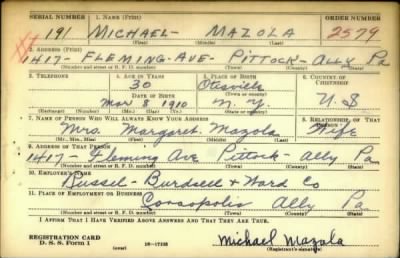 SERIAL NUMBER 1. NAME (Print) ORDER NUMBER
191 MICHAEL- MAZOLA 2579
(First) (Middle) (Last)
2. ADDRESS (Print)
1417- FLEMING-AVE- PITTOCK- ALLY Pa
(Number and street or R. F. D. number) (Town) (County) (State)
3. TELEPHONE 4. AGE IN YEARS 5. PLACE OF BIRTH 6. COUNTRY OF CITIZENSHIP
30 Otisville
DATE OF BIRTH (Town or county)
Mar 8 1910 N.Y. U.S
(Exchange) (Number) (Mo.) (Day) (Yr.) (State or country)
7. NAME OF PERSON WHO WILL ALWAYS KNOW YOUR ADDRESS 8. RELATIONSHIP OF THAT PERSON
Mrs. Margaret. Mazola Wife
(Mr., Mrs., Miss) (First) (Middle) (Last)
9. ADDRESS OF THAT PERSON
1417- Fleming Ave Pittock- Ally Pa
(Number and street or R. F. D. number) (Town) (County) (State)
10. EMPLOYER'S NAME
Russel- Burdsell- Ward Co
11. PLACE OF EMPLOYMENT OR BUSINESS
Coraopolis Ally Pa.
(Number and street or R. F. D. number) (Town) (County) (State)
I AFFIRM THAT I HAVE VERIFIED ABOVE ANSWERS AND THAT THEY ARE TRUE.
REGISTRATION CARD
D. S. S. Form 1 (over) 16-17105 Michael Mazola
(Registrant's signature)